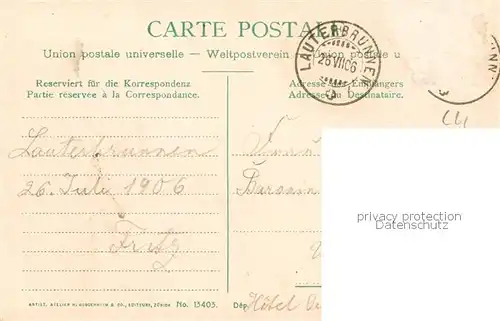 CARTE POSTALE
Union postale universelle – Weltpostverein – Union postale u
LAUTERBRUNNEN
26 VII 06
Reserviert für die Korrespondenz
Partie réservée à la Correspondance.
Adresse des Empfängers
Adresse du Destinataire.
Lauterbrunnen
26. Juli 1906
Fritz
privacy protection
Datenschutz
ARTIST. ATELIER H. GUGGENHEIM & CO., EDITEURS, ZÜRICH
No. 13403.
Dép.
Hôtel